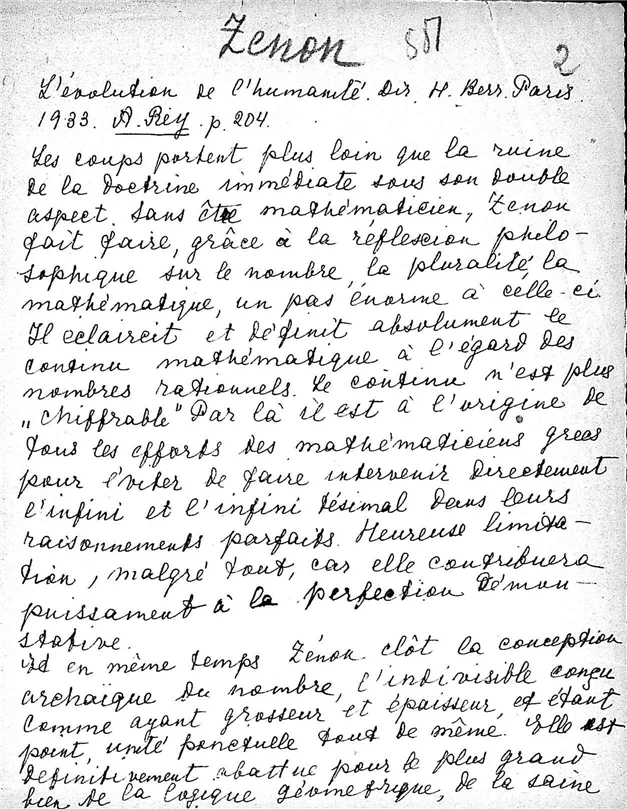 Zenon 2
L'évolution de l'humanité. Dir. H. Berr. Paris
1933. A. Rey. p. 204.
Les coups portent plus loin que la ruine
de la doctrine immédiate sous son double
aspect. Sans être mathématicien, Zenon
fait faire, grâce à la réflexion philo-
sophique sur le nombre, la pluralité, la
mathématique, un pas énorme à celle-ci.
Il eclaircit et définit absolument le
continu mathématique à l'égard des
nombres rationnels. Le continu n'est plus
„chiffrable" Par là il est à l'origine de
tous les efforts des mathématiciens grecs
pour éviter de faire intervenir directement
l'infini et l'infini tésimal dans leurs
raisonnements parfaits. Heureuse limita-
tion, malgré tout, car elle contribuera
puissament à la perfection démon-
stative.
Et en même temps Zénon clôt la conception
archaïque du nombre, l'indivisible conçu
comme ayant grosseur et épaisseur, et étant
point, unité ponctuelle tout de même. Elle est
definitivement abattue pour le plus grand
bien de la logique géometrique, de la saine